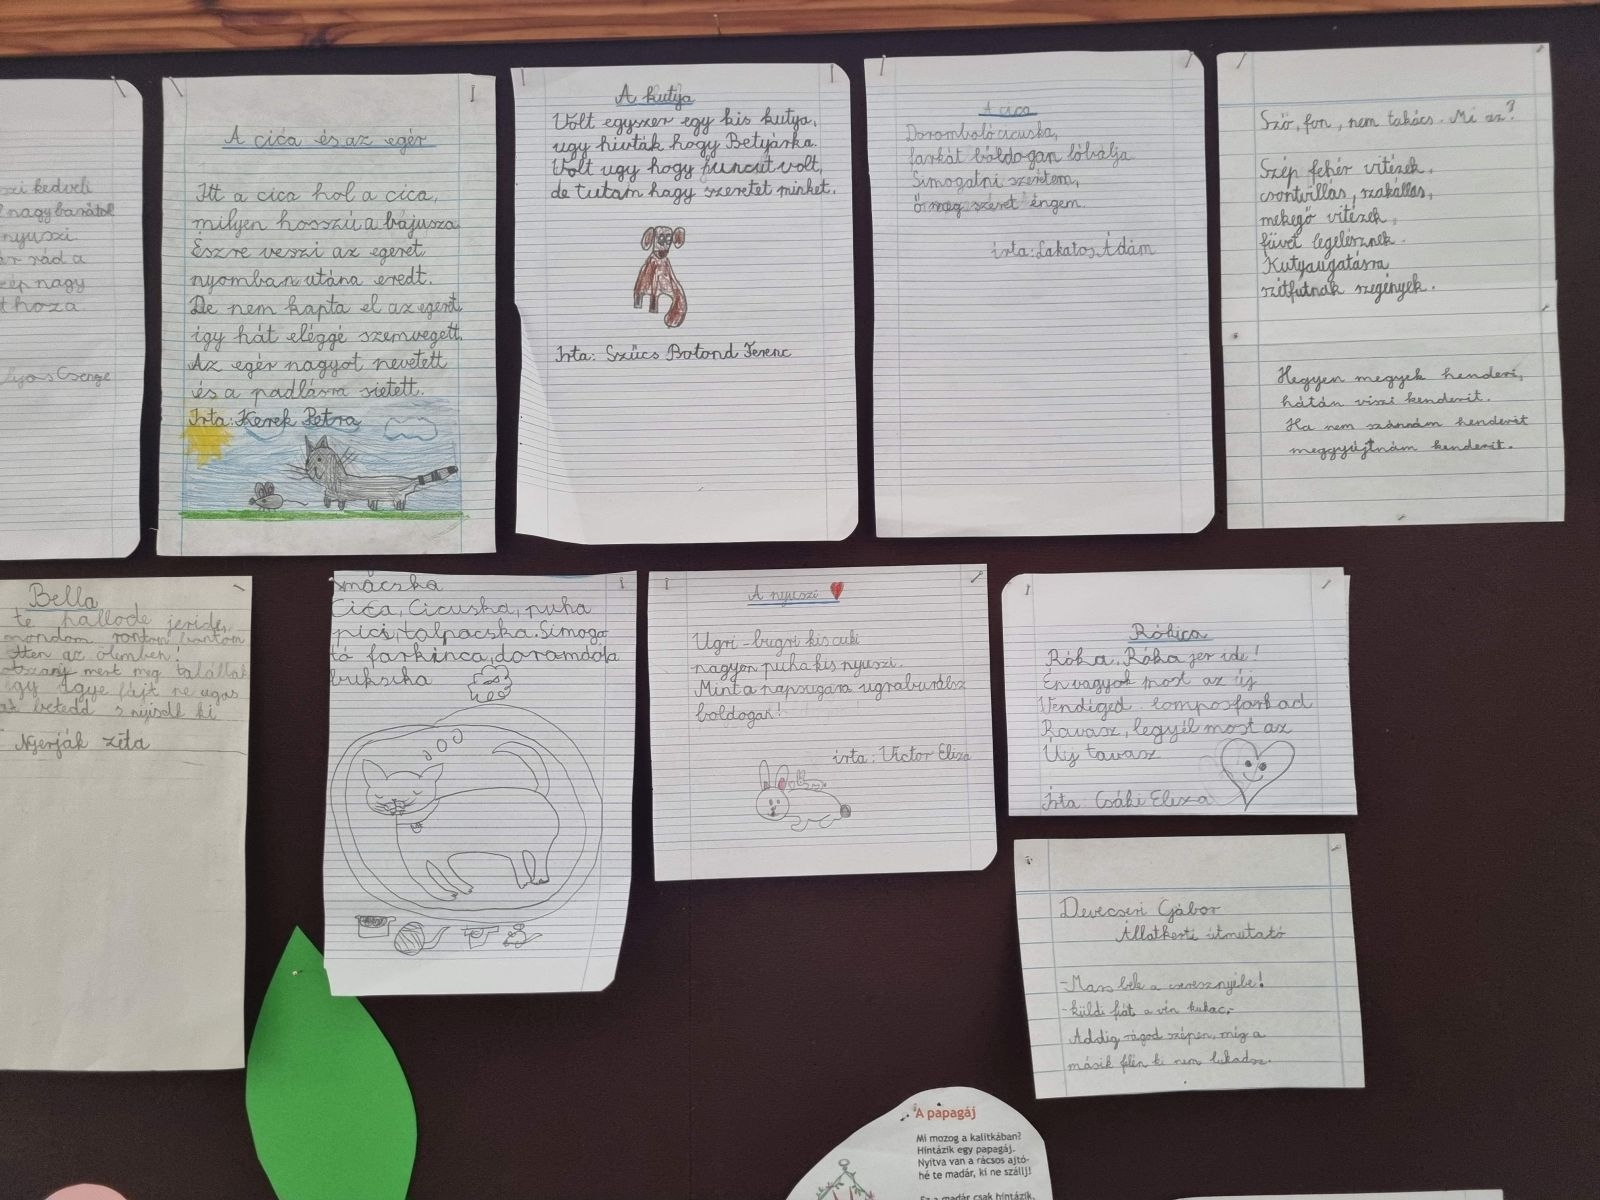 szi kedveli
nagy barátot
nyuszi
ár rád a
szép nagy
t hoza
lyos Csenge
A cica és az egér
Itt a cica hol a cica,
milyen hosszú a bajusza.
Észre veszi az egeret
nyomban utána eredt.
De nem kapta el az egeret
így hát eléggé szenvegett.
Az egér nagyot nevetett
és a padlásra sietett.
Irta: Kerek Petra
A kutya
Volt egyszer egy kis kutya,
ugy hivták hogy Betyárka.
Volt ugy hogy puncut volt,
de tutam hagy szeretet minket.
Irta: Szűcs Botond Ferenc
A cica
Doromboló cicuska,
farkát boldogan lóbálja
Simogatni szeretem,
ő meg szeret engem.
irta: Lakatos Ádám
Sző, fon, nem takács. Mi az?
Szép fehér vitézek,
csontvillás, szakállas,
mekegő vitézek,
füvet legelésznek.
Kutyaugatásra
szétfutnak szegények.
Hegyen megyek henderi,
hátán viszi kenderit.
Ha nem szánnám henderit
meggyújtnám kenderit.
Bella
te pallode jeride,
mondom rontom bontom
tten az ölemben!
mert meg talállat
egy ugye fájt ne ugas
betedd s nyisdk ki
Nyerják Zéta
Smácska
Cica, Cicuska, puha
pici, talpacska. Simoga
tó farkinca, doramdola
buksika
A nyuszi
Ugri-bugri kis cuki
nagyon puha kis nyuszi.
Mint a napsugara ugraburálsz
boldogan!
irta: Victor Eliza
Rókica
Róka, Róka jer ide!
Én vagyok most az új
Vendéged. lomposfarkad
Ravasz, legyél most az
Új tavasz
Írta: Csáki Eliza
Devecseri Gábor
Állatkerti útmutató
-Mars bele a cseresznyébe!
-küldi fiát a vén kukac,-
Addig rágod szépen, míg a
másik felén ki nem lukadsz.
A papagáj
Mi mozog a kalitkában?
Hintázik egy papagáj.
Nyitva van a rácsos ajtó-
hé te madár, ki ne szállj!
Ez a madár csak hintázik,